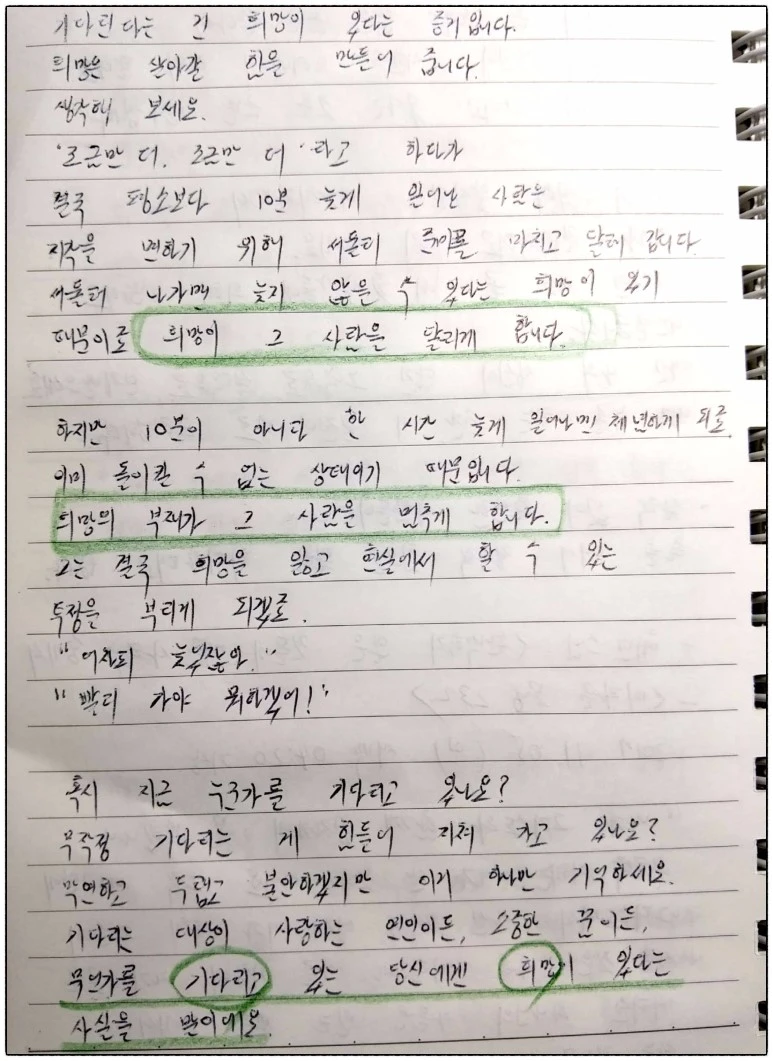 기다린다는 건 희망이 있다는 증거입니다.
희망은 살아갈 힘을 만들어 줍니다.
생각해 보세요.
"조금만 더, 조금만 더" 라고 하다가
결국 평소보다 10분 늦게 일어난 사람은
지각을 면하기 위해 서둘러 준비를 마치고 달려 갑니다.
서둘러 나가면 늦지 않을 수 있다는 희망이 있기
때문이죠 희망이 그 사람을 달리게 합니다.
하지만 10분이 아니라 한 시간 늦게 일어나면 체념하게 되죠.
이미 돌이킬 수 없는 상태이기 때문입니다.
희망의 부재가 그 사람을 멈추게 합니다.
그는 결국 희망을 잃고 현실에서 할 수 있는
투정을 부리게 되겠죠.
"어차피 늦었잖아."
"빨리 가야 뭐하겠어!"
혹시 지금 누군가를 기다리고 있나요?
무작정 기다리는 게 힘들어 지쳐 가고 있나요?
막연하고 두렵고 불안하겠지만 이거 하나만 기억하세요.
기다리는 대상이 사랑하는 연인이든, 소중한 꿈이든,
무언가를 기다리고 있는 당신에겐 희망이 있다는
사실을 말이에요